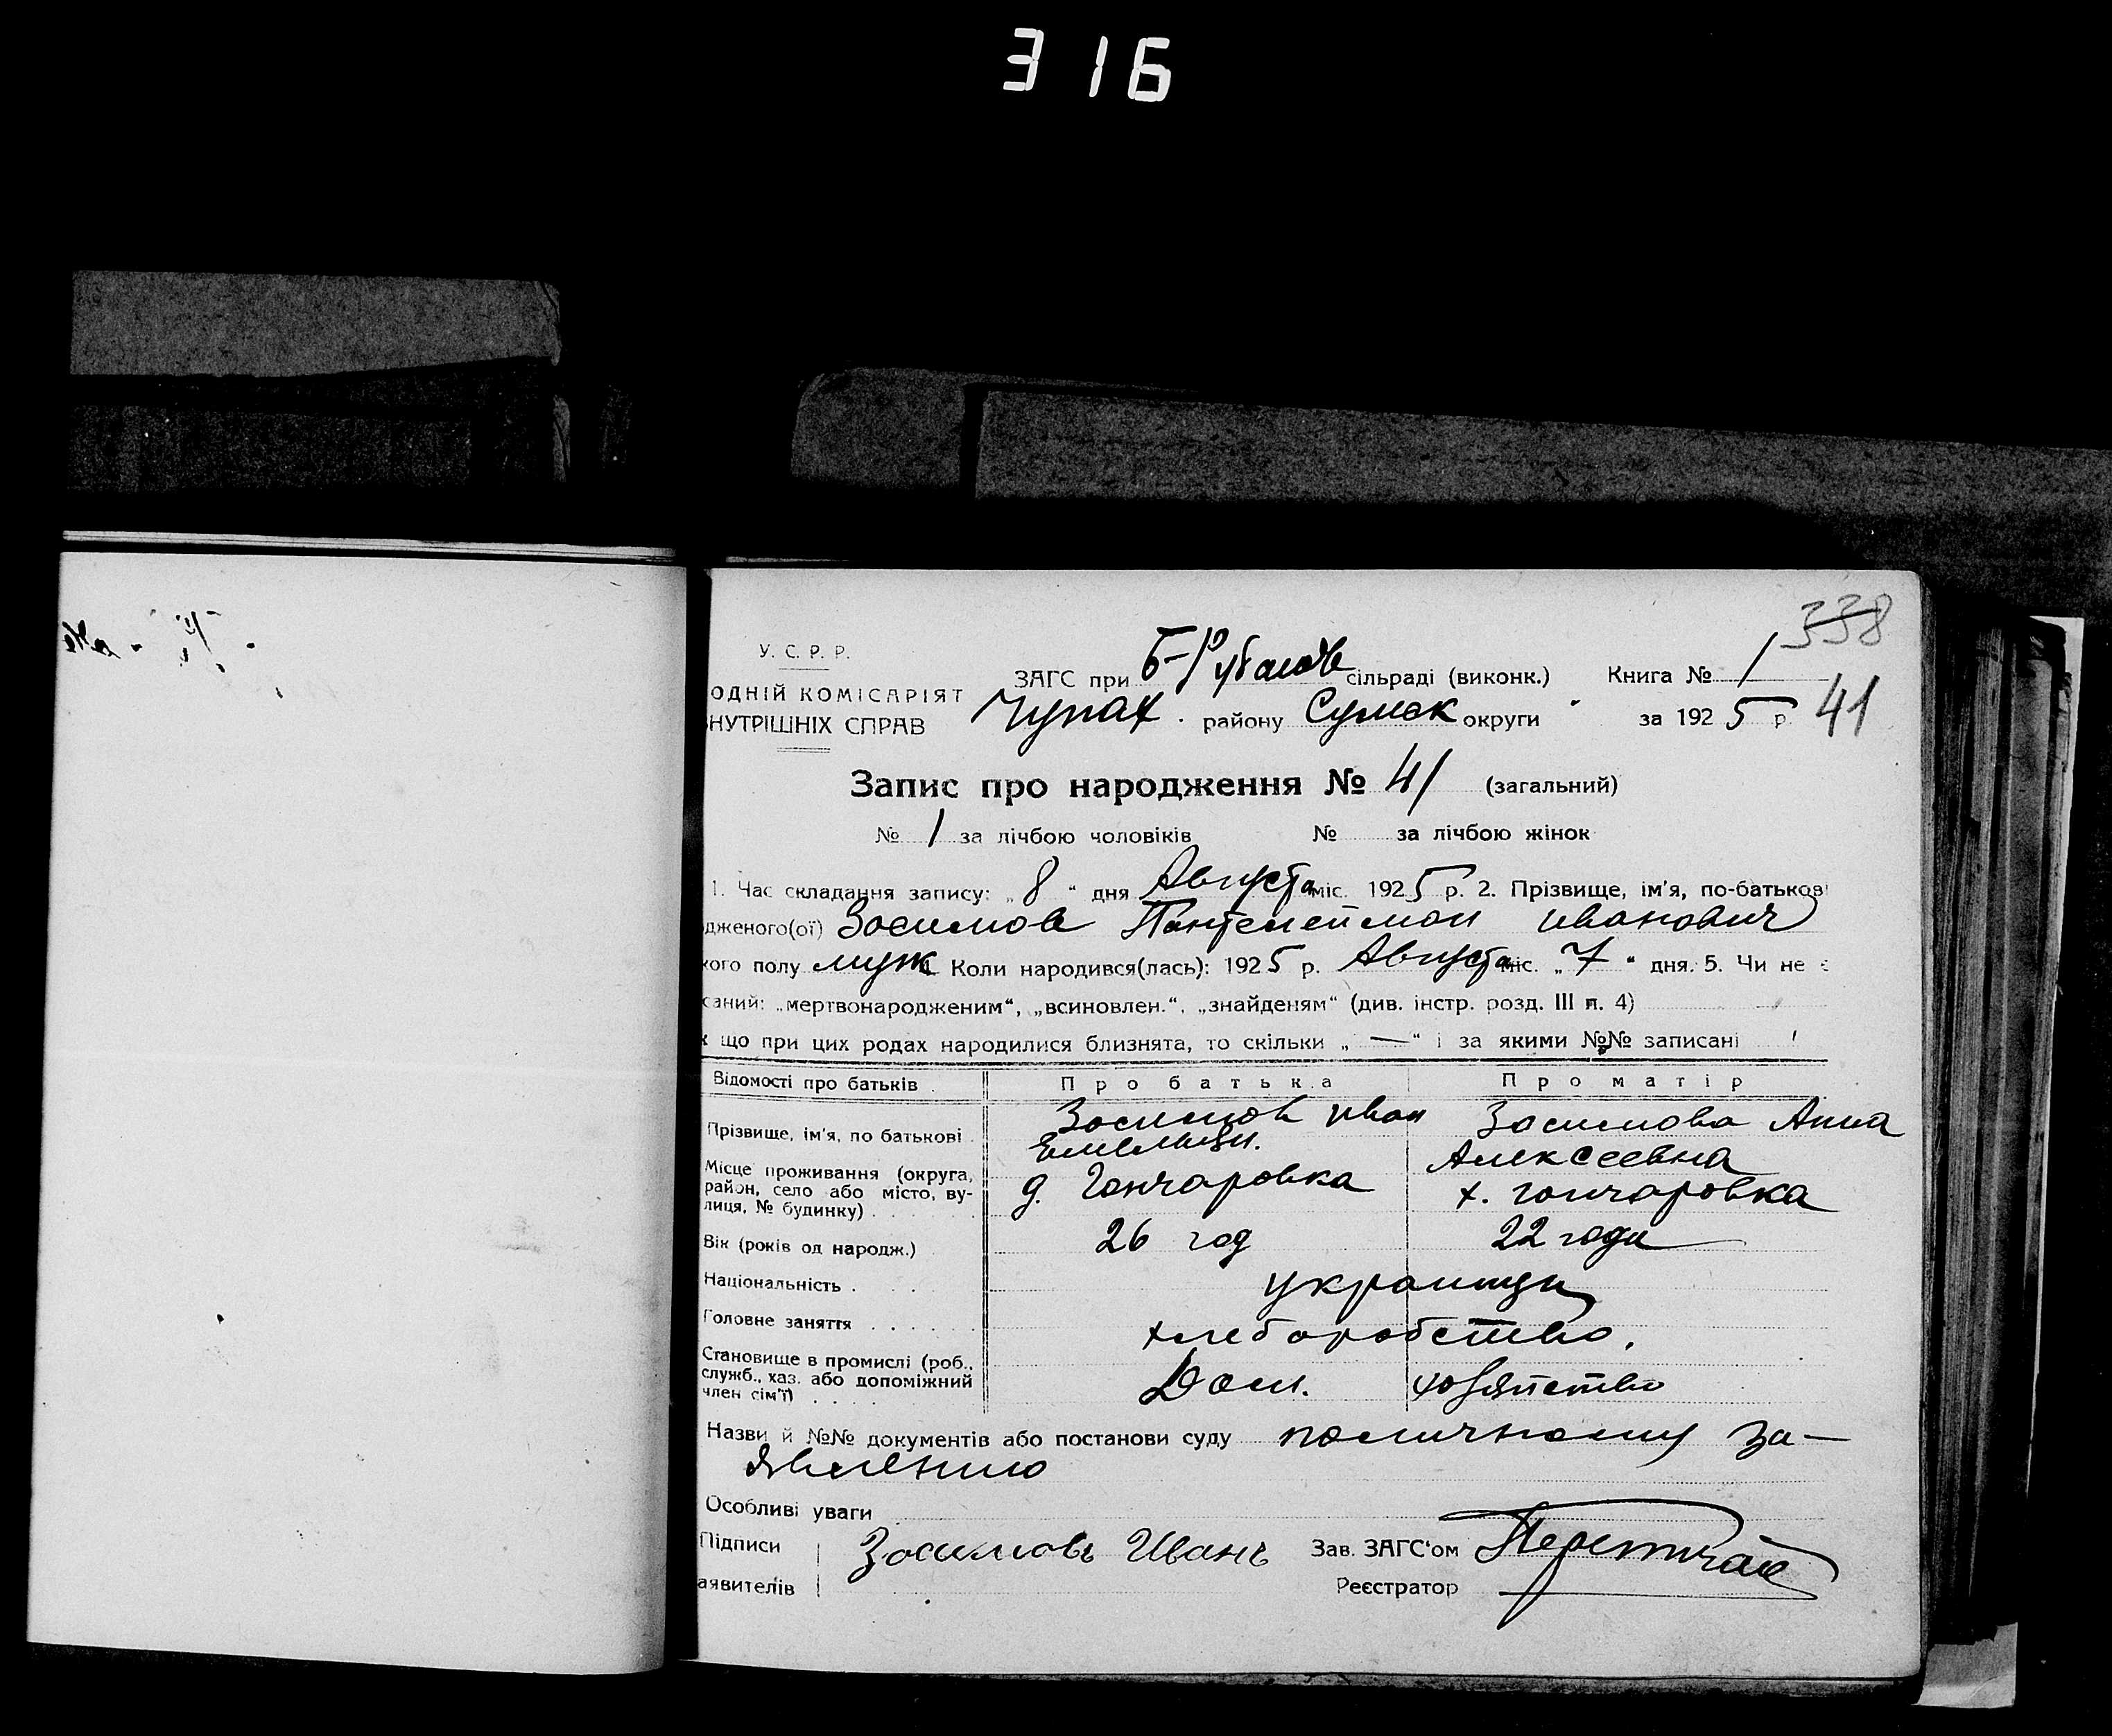 316
338
У. С. Р. Р.
ЗАГС при Б-Рубанов сільраді (виконк.) Книга № 1
ОДНІЙ КОМІСАРІЯТ
НУТРІШНІХ СПРАВ Чупах. району Сумск округи за 1925 р. 41
Запис про народження № 41 (загальний)
№ 1 за лічбою чоловіків № за лічбою жінок
1. Час складання запису: „8“ дня Августа міс. 1925 р. 2. Прізвище, ім'я, по-батькові
дженого(ої) Зосимов Пантелеймон иванович
кого полу муж Коли народився(лась): 1925 р. Августа міс. „7“ дня. 5. Чи не є
саний: „мертвонародженим“, „всиновлен.“, „знайденям“ (див. інстр. розд. III п. 4)
що при цих родах народилися близнята, то скільки „—“ і за якими №№ записані
Відомості про батьків Про батька Про матір
Прізвище, ім'я, по батькові Зосимов иван Емельян. Зосимова Анна Алексеевна
Місце проживання (округа, д. Гончаровка х. гончаровка
район, село або місто, ву-
лиця, № будинку)
Вік (років од народж.) 26 год 22 года
Національність украинцы
Головне заняття хлеборобство.
Становище в промислі (роб.,
служб., хаз. або допоміжний Дом. хозяйство
член сім'ї)
Назви й №№ документів або постанови суду поличному за-
явлению
Особливі уваги
Підписи Зосимовъ Иванъ Зав. ЗАГС'ом
аявителів Реєстратор